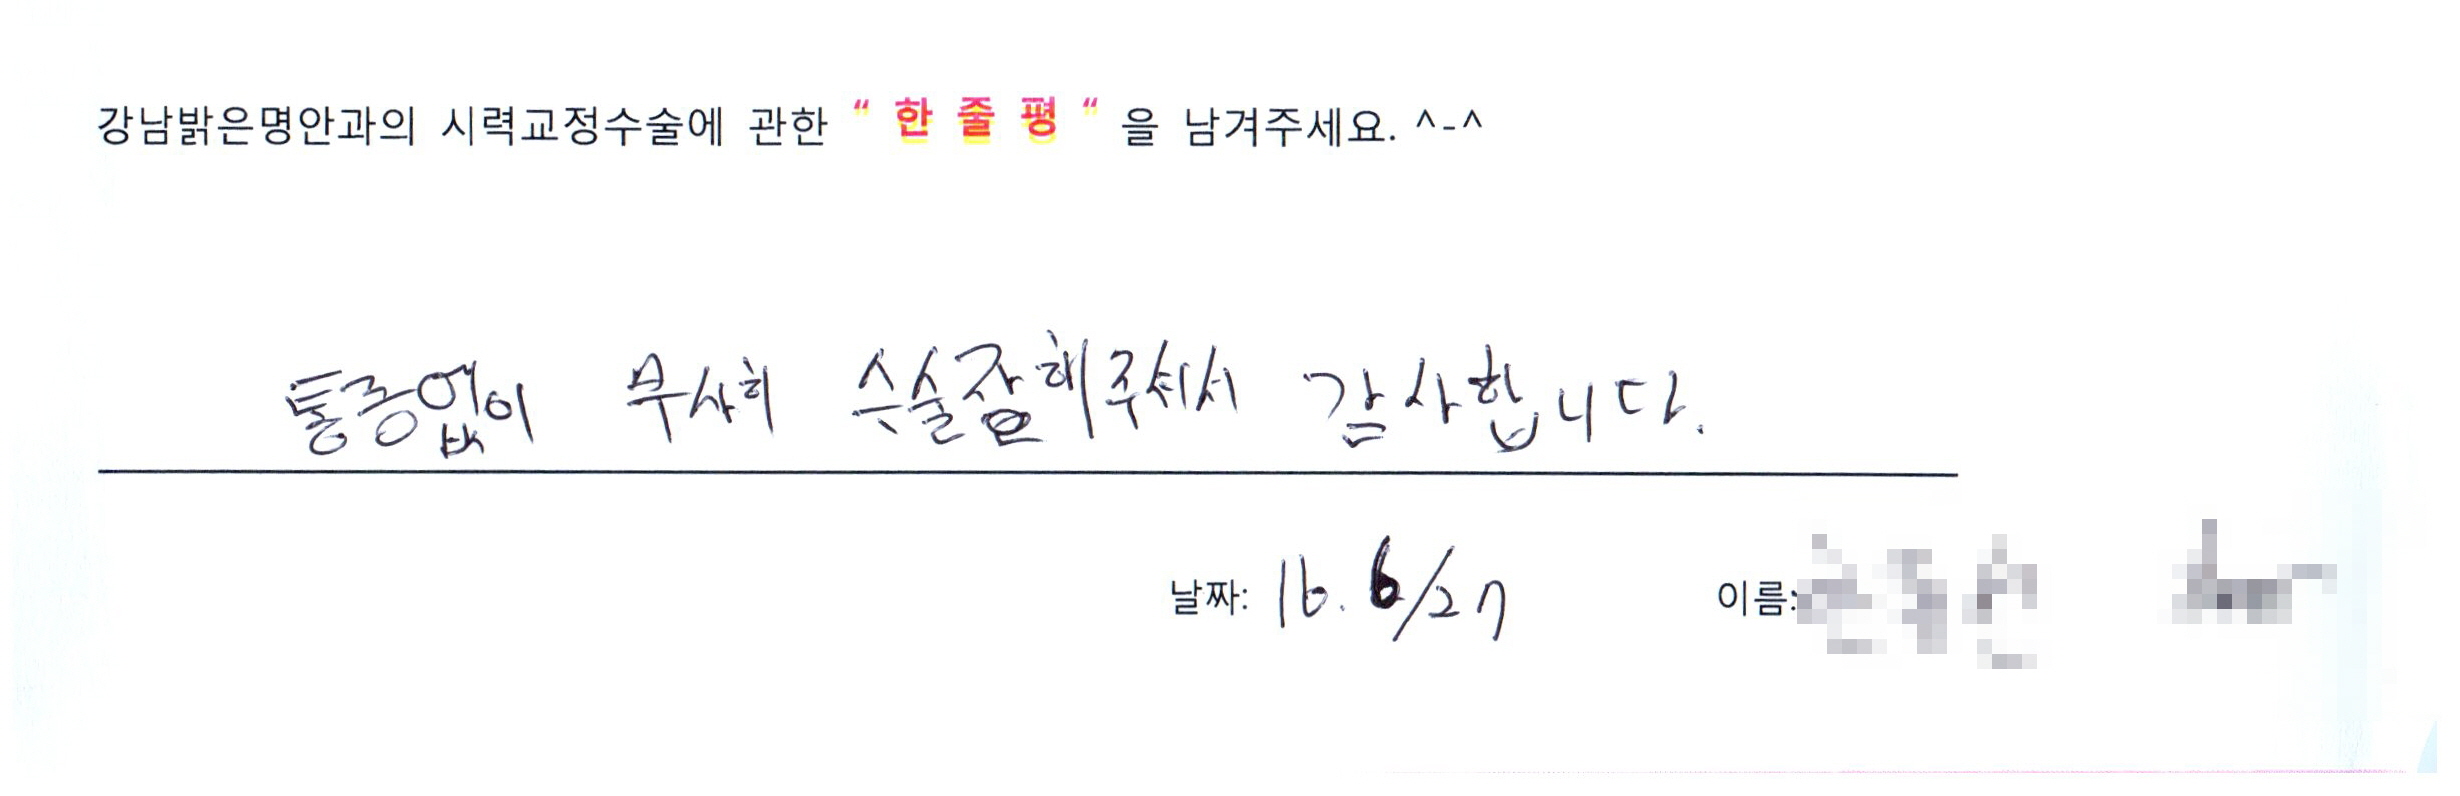 강남밝은명안과의 시력교정수술에 관한 “ 한 줄 평 “ 을 남겨주세요. ^-^
통증없이 무사히 수술잘해주셔서 감사합니다.
날짜: 16. 6/27 이름: